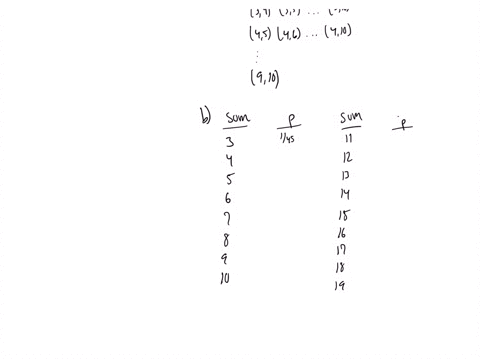 (4,5) (4,6) ... (4,10)
⋮
(9,10)
b) Sum P Sum P
3 1/45 11
4 12
5 13
6 14
7 15
8 16
9 17
10 18
19